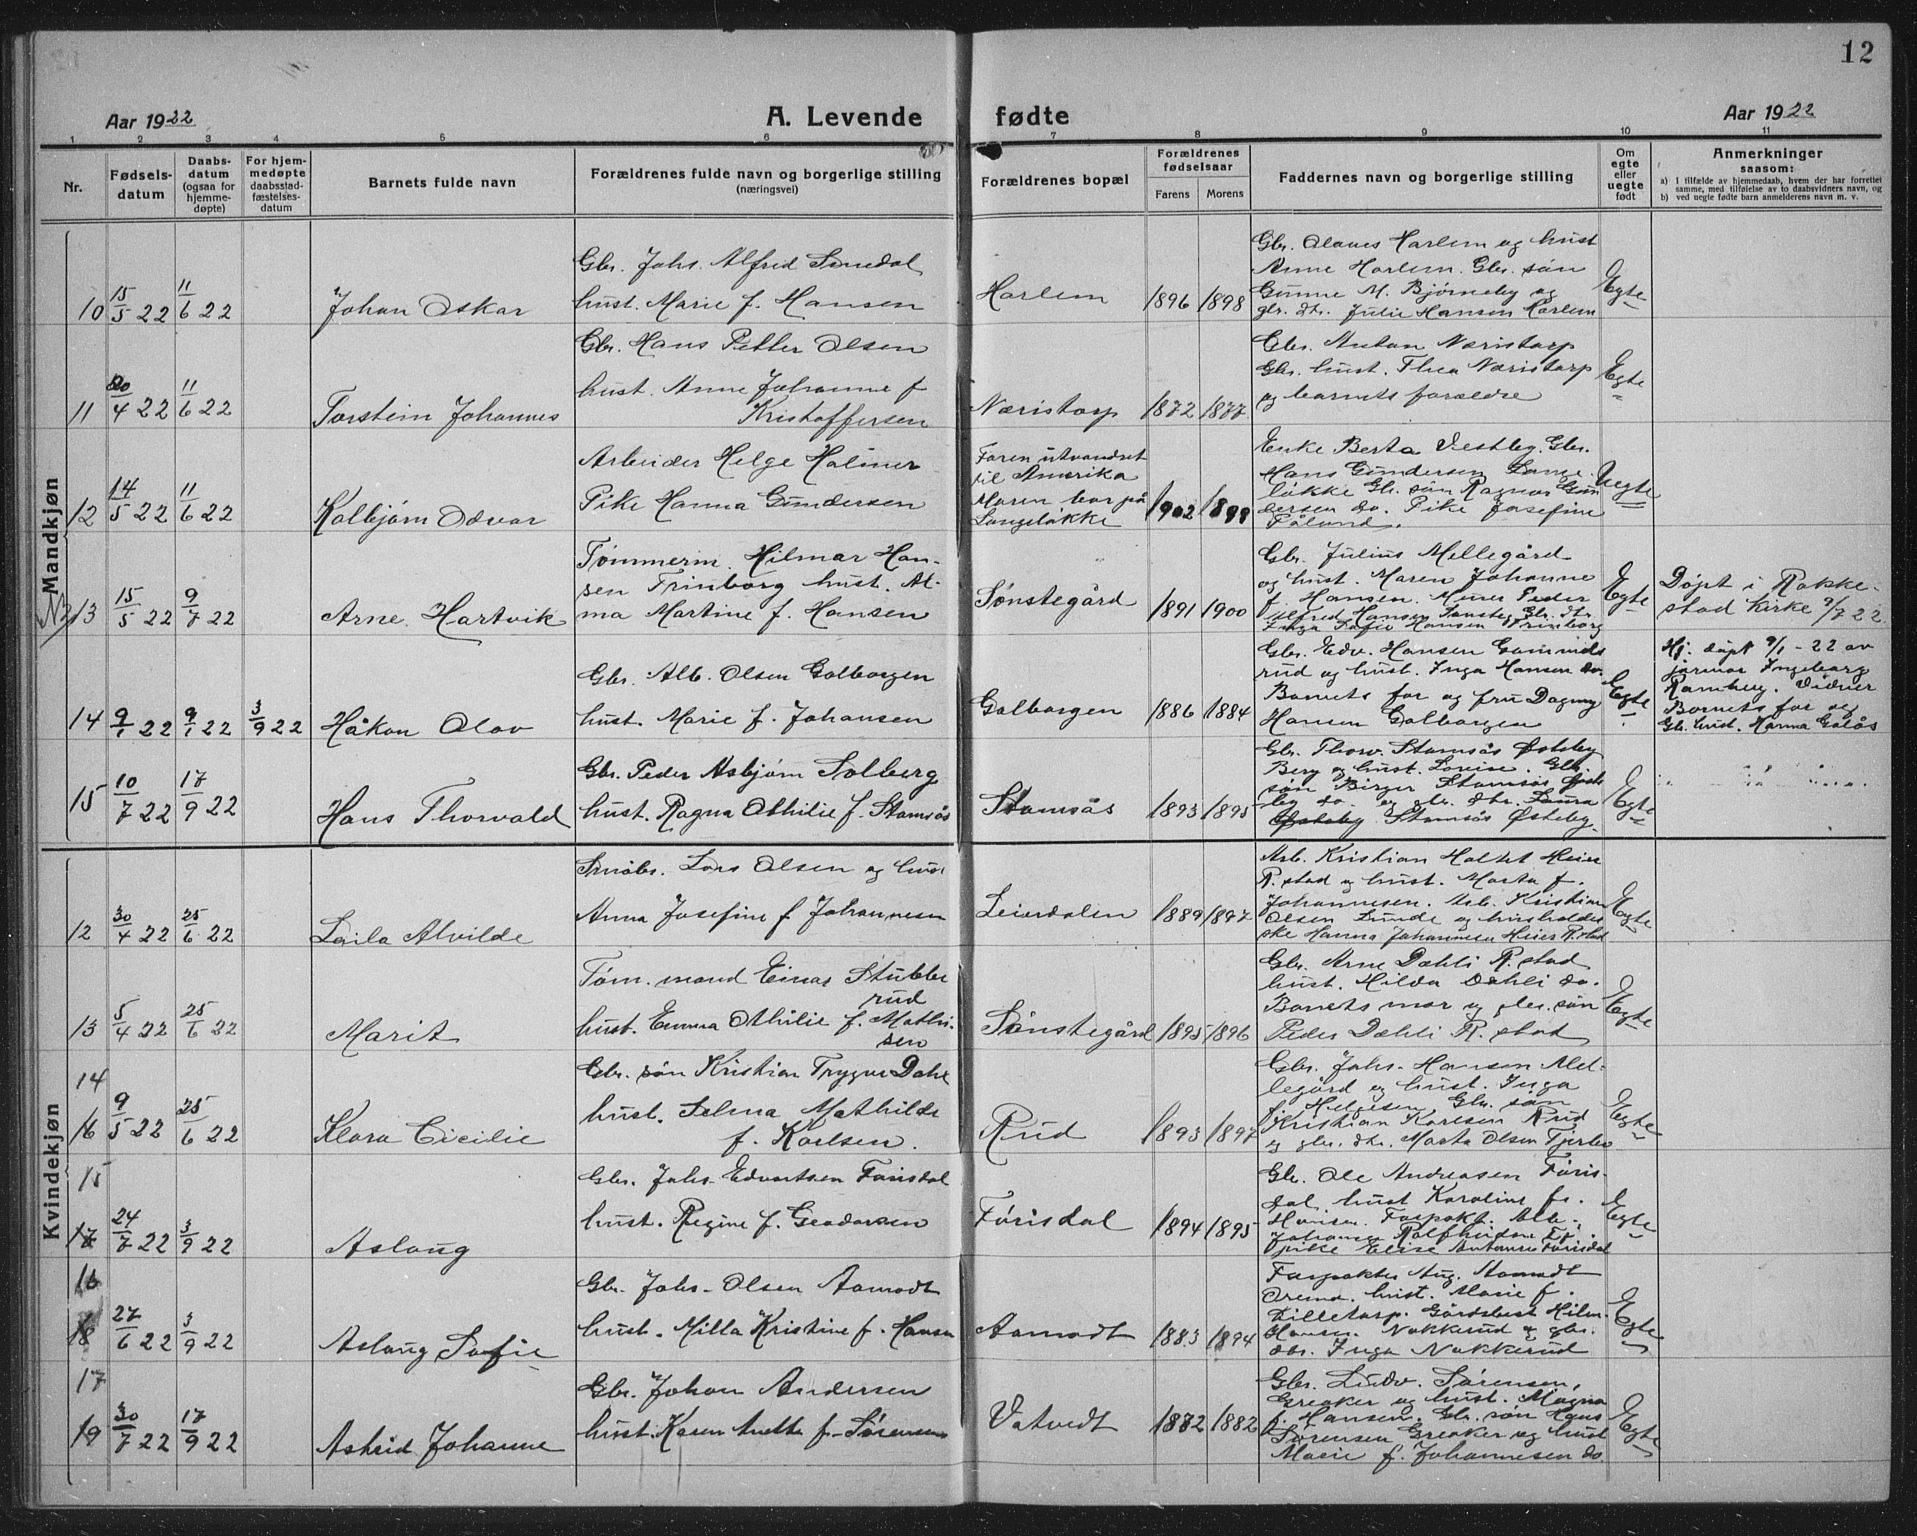 12
Aar 1922
A. Levende
fødte
Aar 1922
1 2 3 4 5 6 7 8 9 10 11
Nr.
Fødsels-
datum
Daabs-
datum
(ogsaa for
hjemme-
døpte)
For hjem-
medøpte
daabsstad-
fæstelses-
datum
Barnets fulde navn
Forældrenes fulde navn og borgerlige stilling
(næringsvei)
Forældrenes bopæl
Forældrenes
fødselsaar
Farens Morens
Faddernes navn og borgerlige stilling
Om
egte
eller
uegte
født
Anmerkninger
saasom:
a) I tilfælde av hjemmedaab, hvem der har forrettet
samme, med tilføielse av to daabsvidners navn, og
b) ved uegte fødte barn anmelderens navn m. v.
Mandkjøn
10 15/5 22 11/6 22
Johan Oskar
Gbr. Johs. Alfred
hust. Marie f. Hansen
Harlem
1896 1898
Gbr. Olaves Harlem og hust
Anne Harlem. Gbr. søn
Gunne M. Bjørneby og
gbr. dtr. Julie Hansen Harlem
Egte
11 20/4 22 11/6 22
Torstein Johannes
Gbr. Hans Petter Olsen
hust. Anne Johanne f
Kristoffersen
Næristorp
1872 1877
Gbr. Anton Næristorp
Gbr. hust. Thea Næristorp
og barnets forældre
Egte
12 14/5 22 11/6 22
Kolbjørn Odvar
Arbeider Helge Holmer
Pike Hanna Gundersen
Faren utvandret
til Amerika
Moren bor på
Langeløkke
1902 1899
Enke Berta Vestby. Gbr.
Hans Gundersen Lange
løkke Gbr. søn Ragnar Gun
dersen do. Pike Josefine
Uegte
13 15/5 22 9/7 22
Arne Hartvik
Tømmerm. Hilmar Han-
sen Trinborg hust. Al-
ma Martine f. Hansen
Sønstegård
1891 1900
Gbr. Julius Mellegård
og hust. Maren Johanne
f. Hansen. Murer Peder
Alfred Hansen Gbr. dtr.
Inga Sofie Hansen Trinborg
Egte
Døpt i Rakke-
stad Kirke 9/7 22
14 9/1 22 9/1 22 3/9 22
Håkon Olav
Gbr. Alb. Olsen Golborgen
hust. Marie f. Johansen
Golborgen
1886 1884
Gbr. Edv. Hansen
rud og hust. Inga Hansen do.
Barnets far og fru Dagny
Hansen Golborgen
Egte
Hj. døpt 9/1-22 av
jormor Ingeborg
Ramberg. Vidner
Barnets far og
Gbr. hust. Hanna
15 10/7 22 17/9 22
Hans Thorvald
Gbr. Peder Asbjørn Solberg
hust. Ragna Othilie f. Stamsås
Stamsås
1893 1895
Gbr. Thorv. Stamsås Østeby
Berg og hust. Lovise. Gbr.
søn Birger Stamsås Øste
by do. og gbr. dtr. Laura
Østeby Stamsås Østeby
Egte
Kvindekjøn
12 30/4 22 25/6 22
Laila Alvilde
Småbr. Lars Olsen og hus
Anna Josefine f Johannesen
Leierdalen
1889 1897
Arb. Kristian Holtet Heier
R.stad og hust. Marta f.
Johannesen. Arb. Kristian
Olsen Lunde og husholder
ske Hanna Johannesen Heier R.stad
Egte
13 5/4 22 25/6 22
Marit
Tøm. mand Einar Stubbe
rud
hust. Emma Othilie f. Mathi-
sen
Sønstegård
1895 1896
Gbr. Arne Dæhli R.stad
hust. Hilda Dæhli do.
Barnets mor og gbr. søn
Peder Dæhli R.stad
Egte
14
16 9/5 22 25/6 22
Klara Cicilie
Gbr. søn Kristian Trygve Dahl
hust. Selma Mathilde
f. Karlsen.
Rud
1893 1897
Gbr. Johs. Hansen Mel-
legård og hust. Inga
f. Helgesen. Gbr. søn
Kristian Karlsen Rud
og gbr. dtr. Marta Olsen
Egte
15
17 24/7 22 3/9 22
Aslaug
Gbr. Johs. Edvartsen Førisdal
hust. Regine f.
Førisdal
1894 1895
Gbr. Ole Andreasen Føris-
dal, hust Karoline f.
Hansen. Forpakt. Alb.
Johannes
pike Elise Antonsen Førisdal
Egte
16
18 27/6 22 3/9 22
Aslaug Sofie
Gbr. Johs. Olsen Aamodt
hust. Milla Kristine f. Hansen
Aamodt
1883 1894
Forpakter Aug. Aamodt
hust. Marie f.
Lilletorp. Gårdsbest Hilm.
Hansen Nakkerud og gbr.
dtr. Inga Nakkerud
Egte
17
19 30/7 22 17/9 22
Astrid Johanne
Gbr. Johan Andersen
hust. Karen Anette f. Sørensen
Vatvedt
1882 1882
Gbr. Ludv. Sørensen,
Greaker og hust. Magna
f. Hansen. Gbr. søn Hans
Sørensen Greaker og hust
Marie f. Johannesen do
Egte